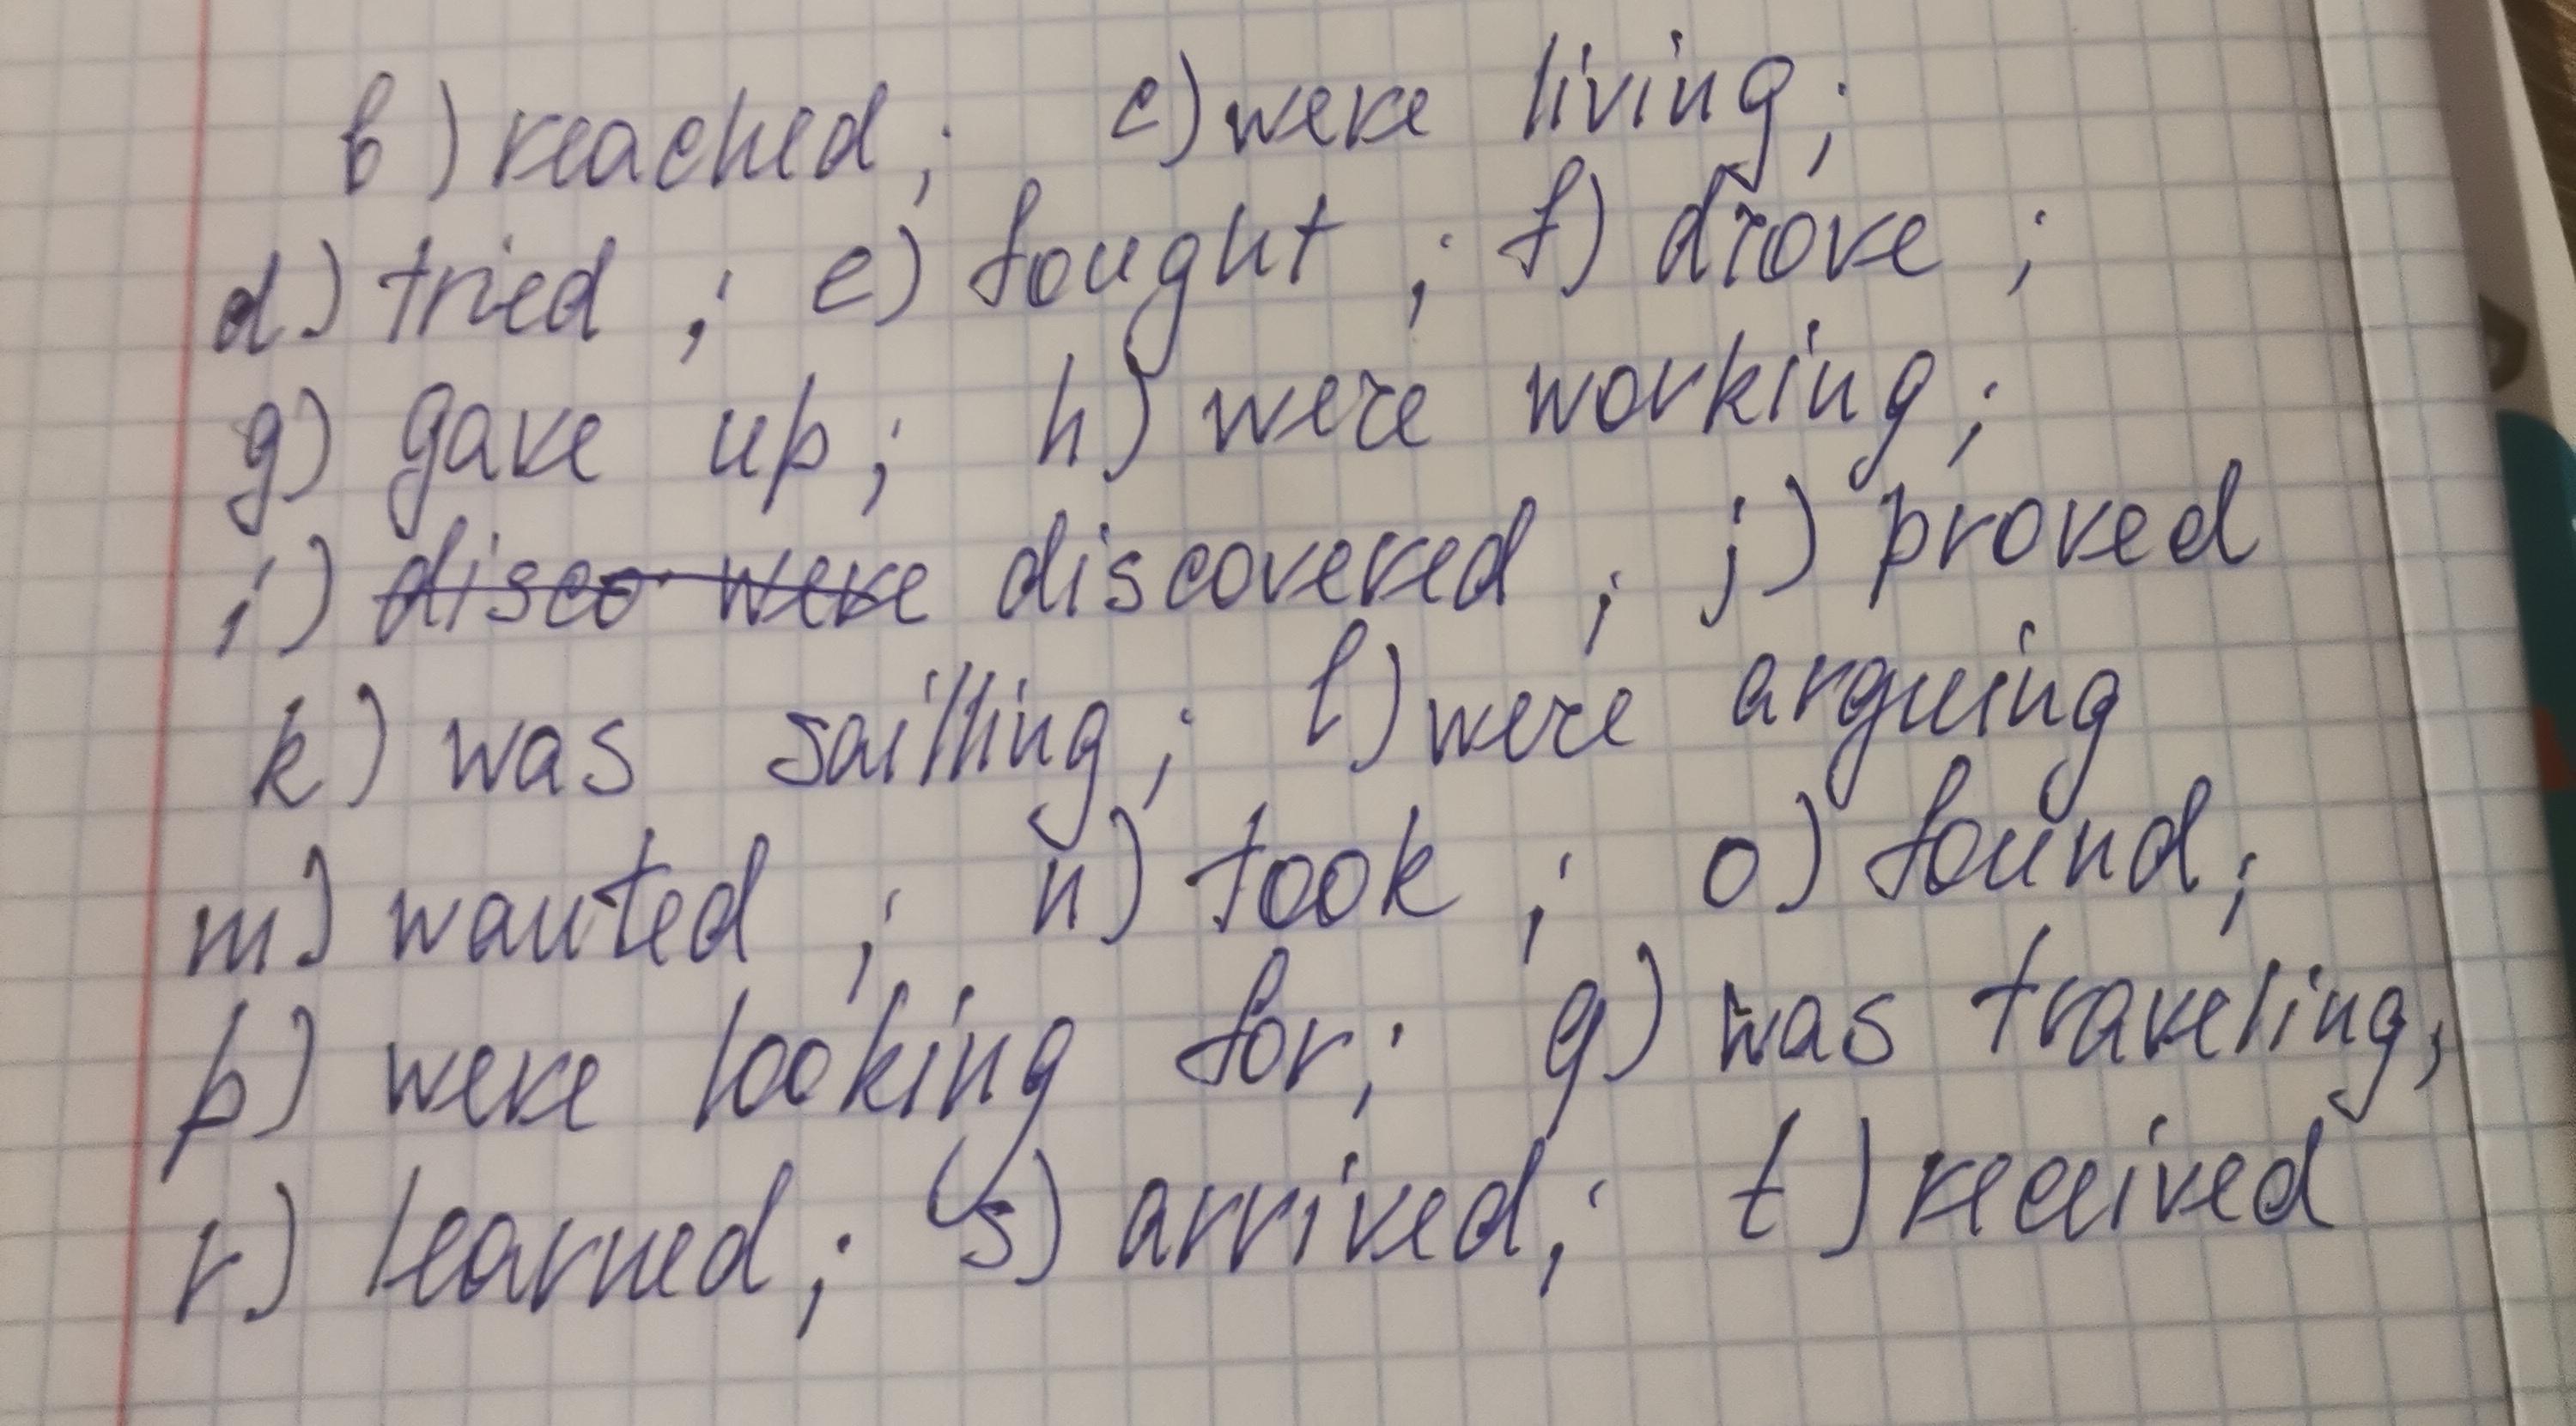 b) reached; c) were living;
d) tried; e) fought; f) drove;
g) gave up; h) were working;
i) disco were discovered; j) proved
k) was sailling; l) were arguing
m) wanted; n) took; o) found;
p) were looking for; q) was traveling,
r) learned; s) arrived; t) received